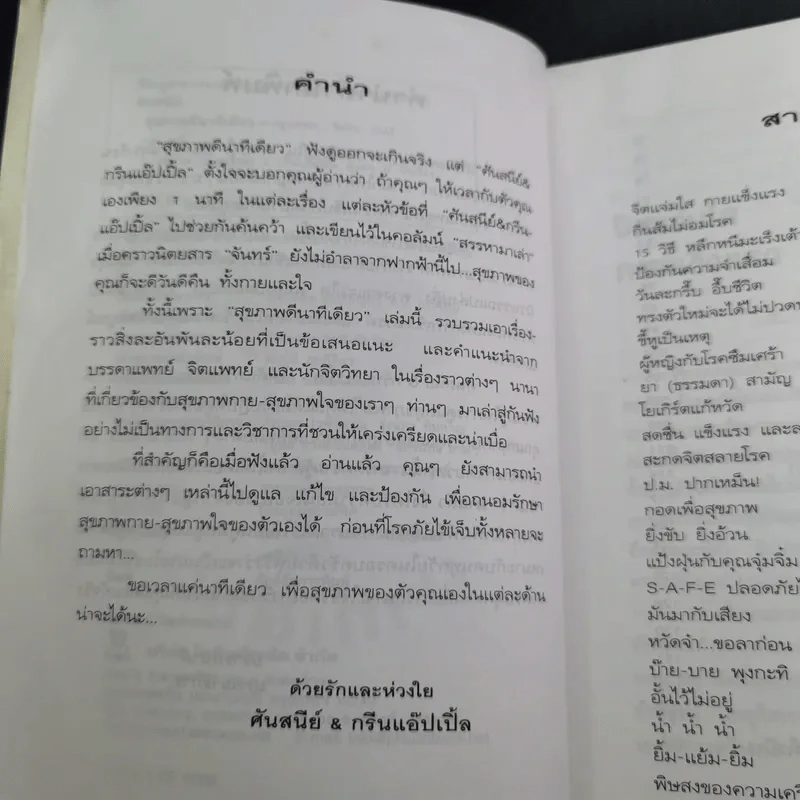 คำนำ
"สุขภาพดีนาทีเดียว" ฟังดูออกจะเกินจริง แต่ "ศันสนีย์&
กรีนแอ๊ปเปิ้ล" ตั้งใจจะบอกคุณผู้อ่านว่า ถ้าคุณๆ ให้เวลากับตัวคุณ
เองเพียง 1 นาที ในแต่ละเรื่อง แต่ละหัวข้อที่ "ศันสนีย์&กรีน-
แอ๊ปเปิ้ล" ไปช่วยกันค้นคว้า และเขียนไว้ในคอลัมน์ "สรรหามาเล่า"
เมื่อคราวนิตยสาร "จันทร์" ยังไม่อำลาจากฟากฟ้านี้ไป...สุขภาพของ
คุณก็จะดีวันดีคืน ทั้งกายและใจ
ทั้งนี้เพราะ "สุขภาพดีนาทีเดียว" เล่มนี้ รวบรวมเอาเรื่อง-
ราวสิ่งละอันพันละน้อยที่เป็นข้อเสนอแนะ และคำแนะนำจาก
บรรดาแพทย์ จิตแพทย์ และนักจิตวิทยา ในเรื่องราวต่างๆ นานา
ที่เกี่ยวข้องกับสุขภาพกาย-สุขภาพใจของเราๆ ท่านๆ มาเล่าสู่กันฟัง
อย่างไม่เป็นทางการและวิชาการที่ชวนให้เคร่งเครียดและน่าเบื่อ
ที่สำคัญก็คือเมื่อฟังแล้ว อ่านแล้ว คุณๆ ยังสามารถนำ
เอาสาระต่างๆ เหล่านี้ไปดูแล แก้ไข และป้องกัน เพื่อถนอมรักษา
สุขภาพกาย-สุขภาพใจของตัวเองได้ ก่อนที่โรคภัยไข้เจ็บทั้งหลายจะ
ถามหา...
ขอเวลาแค่นาทีเดียว เพื่อสุขภาพของตัวคุณเองในแต่ละด้าน
น่าจะได้นะ...
ด้วยรักและห่วงใย
ศันสนีย์ & กรีนแอ๊ปเปิ้ล
สา
จิตแจ่มใส กายแข็งแรง
กินส้มไม่อมโรค
15 วิธี หลีกหนีมะเร็งเต้า
ป้องกันความจำเสื่อม
วันละกรึ๊บ อึ๊บชีวิต
ทรงตัวใหม่จะได้ไม่ปวด
ขี้หูเป็นเหตุ
ผู้หญิงกับโรคซึมเศร้า
ยา (ธรรมดา) สามัญ
โยเกิร์ตแก้หวัด
สดชื่น แข็งแรง และ
สะกดจิตสลายโรค
ป.ม. ปากเหม็น!
กอดเพื่อสุขภาพ
ยิ่งขับ ยิ่งอ้วน
แป้งฝุ่นกับคุณจุ๋มจิ๋ม
S-A-F-E ปลอดภัย
มันมากับเสียง
หวัดจ๋า...ขอลาก่อน
บ๊าย-บาย พุงกะทิ
อั้นไว้ไม่อยู่
น้ำ น้ำ น้ำ
ยิ้ม-แย้ม-ยิ้ม
พิษสงของความเครี